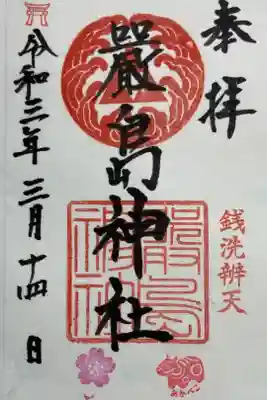 奉拝
銭洗辨天
嚴島神社
嚴島神社
令和三年三月十四日
あかべこ